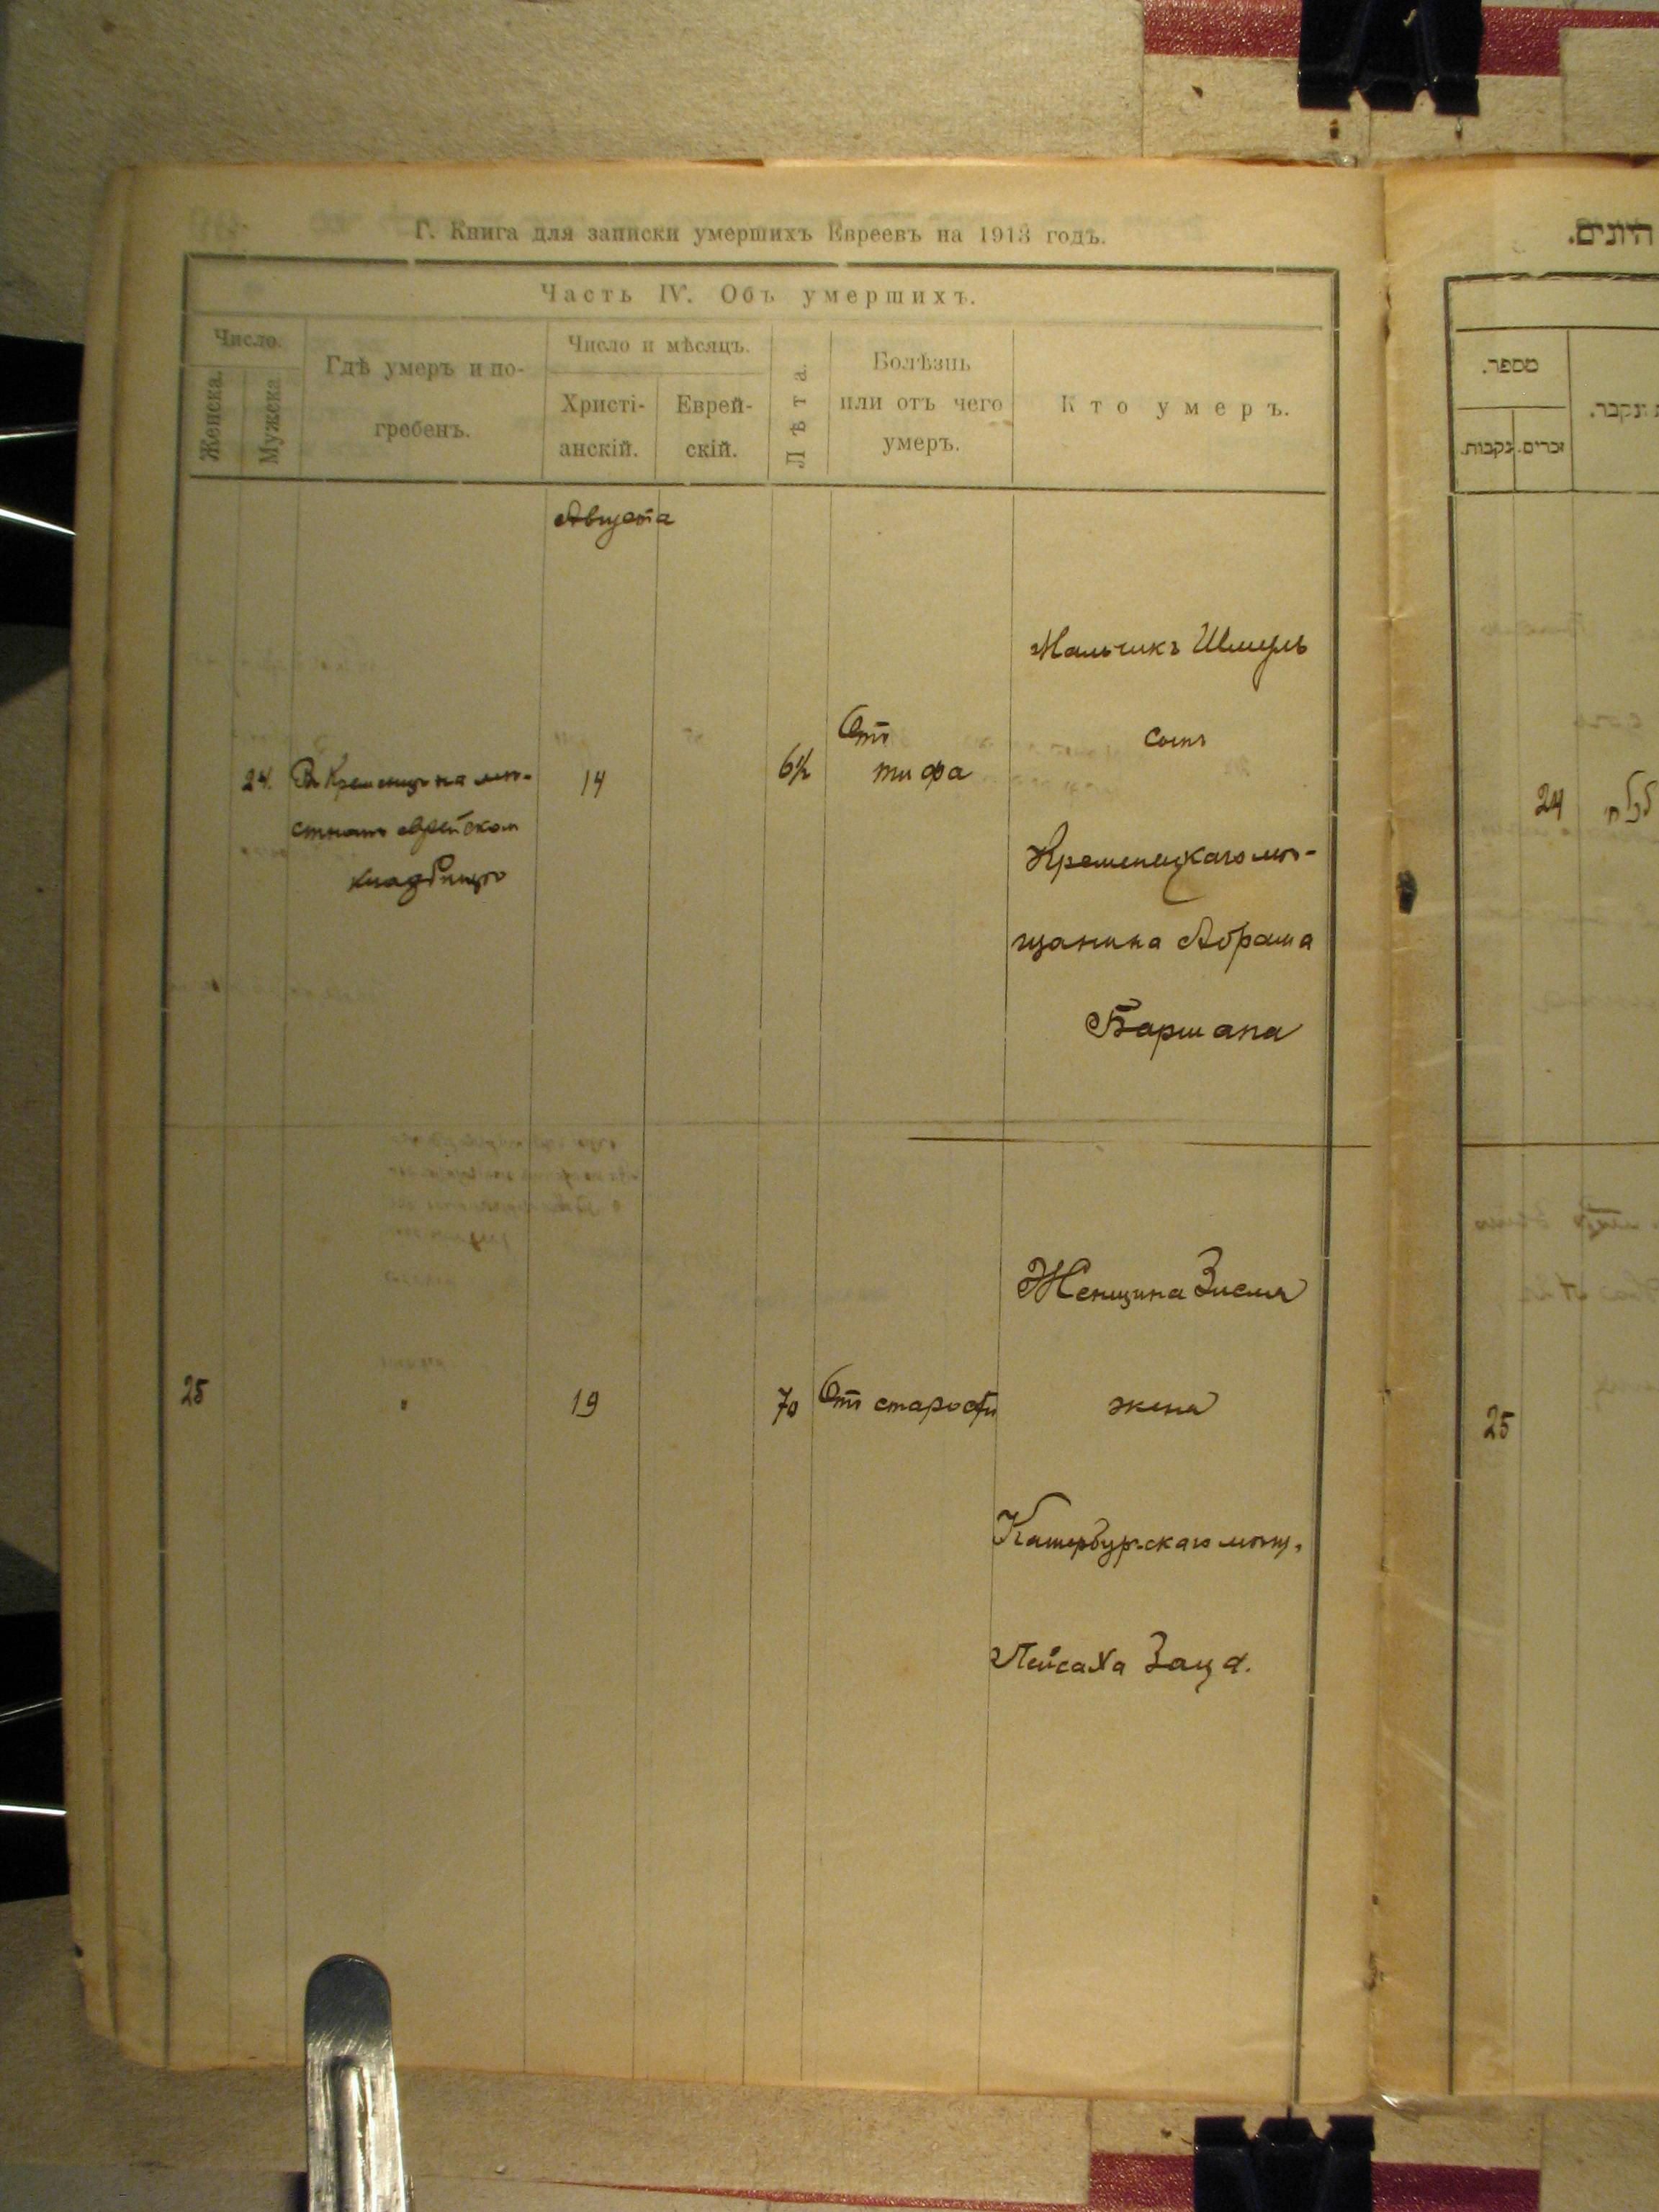 Г. Книга для записки умершихъ Евреевъ на 1913 годъ.
Часть IV. Объ умершихъ.
Число.
Женска.
Мужска
Гдѣ умеръ и по-
гребенъ.
Число и мѣсяцъ.
Христі-
анскій.
Еврей-
скій.
Лѣта.
Болѣзнь
или отъ чего
умеръ.
Кто умеръ.
Августа
24.
Въ Кременцѣ на мѣ-
стномъ еврейском
кладбищѣ
14
6½
Отъ
тифа
Мальчикъ Шмуль
сынъ
Кременецкаго мѣ-
щанина Абрама
Баршапа
25
"
19
70
Отъ старости
Женщина Зисля
жена
Катербургскаго мѣщ.
Пейсаха Заца.
היונים.
מספר.
נקבות.
זכרים.
נקבר.
24
25